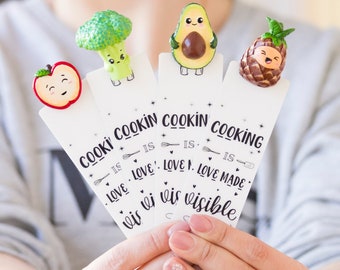 COOKI
LOVE
vis
COOKIN
IS
LOVE
vis
COOKIN
IS
LOVE M
vis
COOKING
IS
LOVE MADE
visible